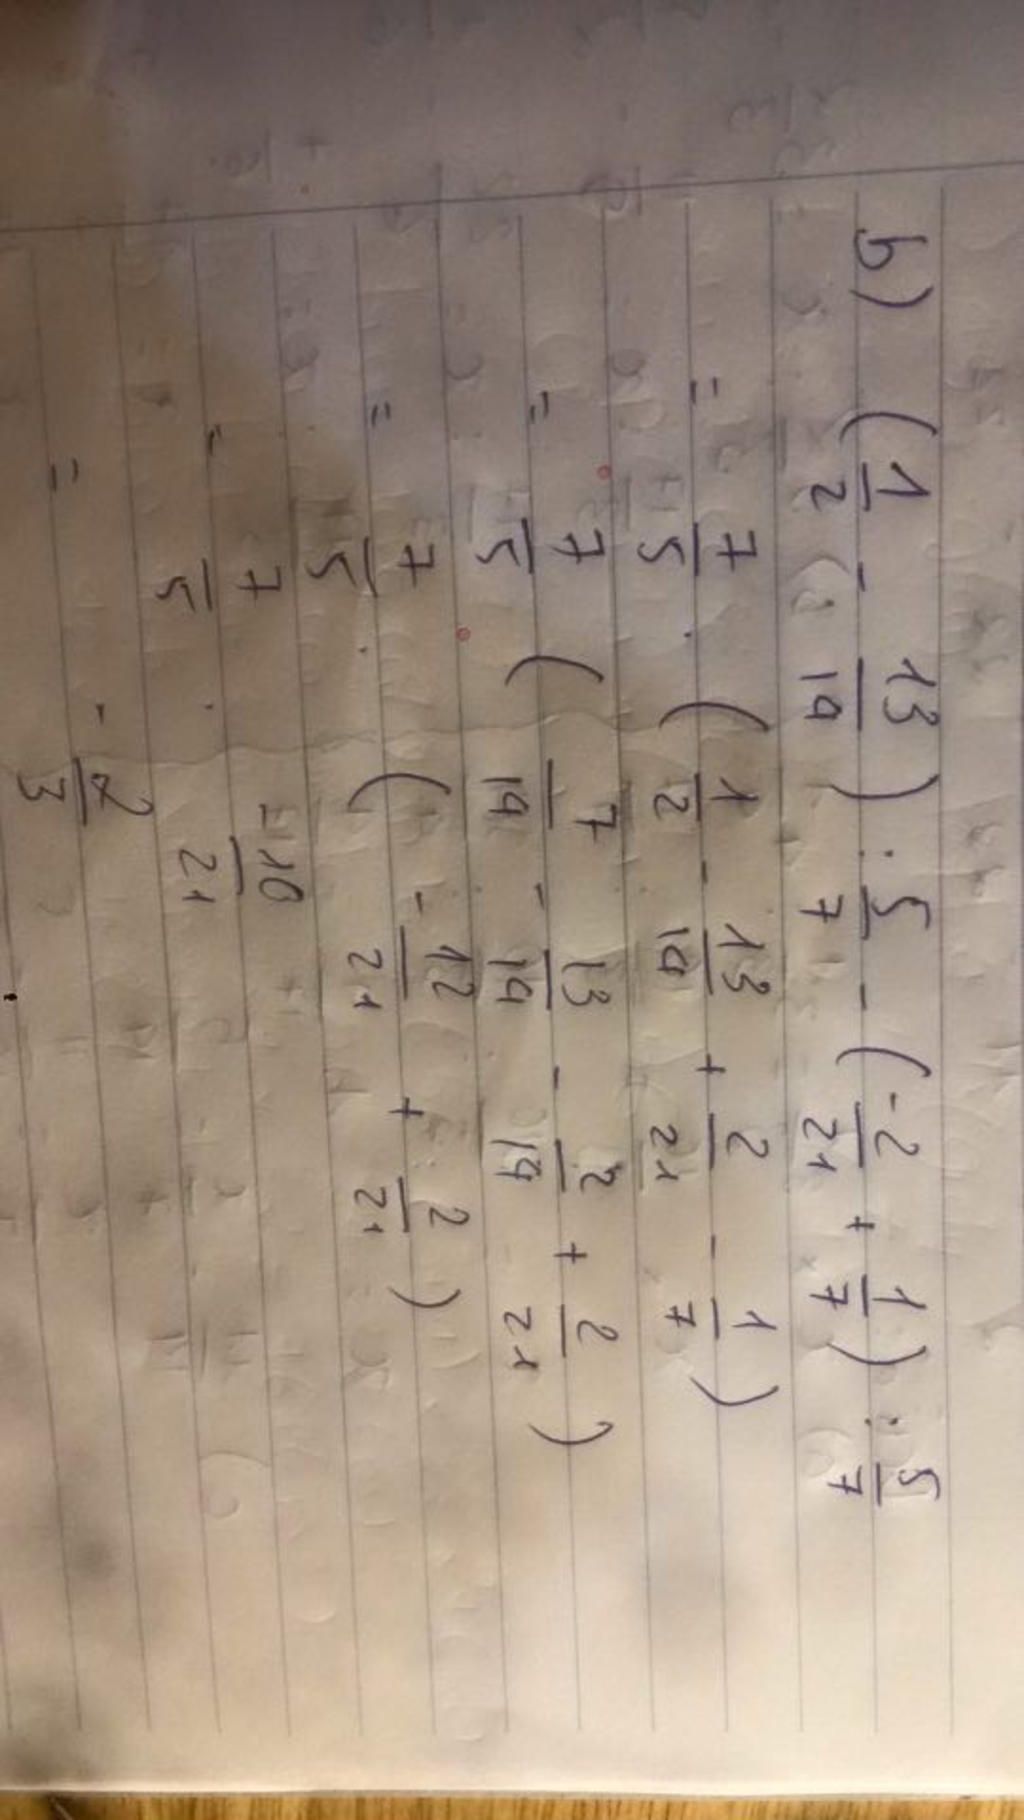 b) (1/2 - 13/14) : 5/7 - (-2/21 + 1/7) : 5/7
= 7/5 . (1/2 - 13/14 + 2/21 - 1/7)
= 7/5 (7/14 - 13/14 - 2/14 + 2/21)
= 7/5 . (-12/21 + 2/21)
= 7/5 . -10/21
= -2/3